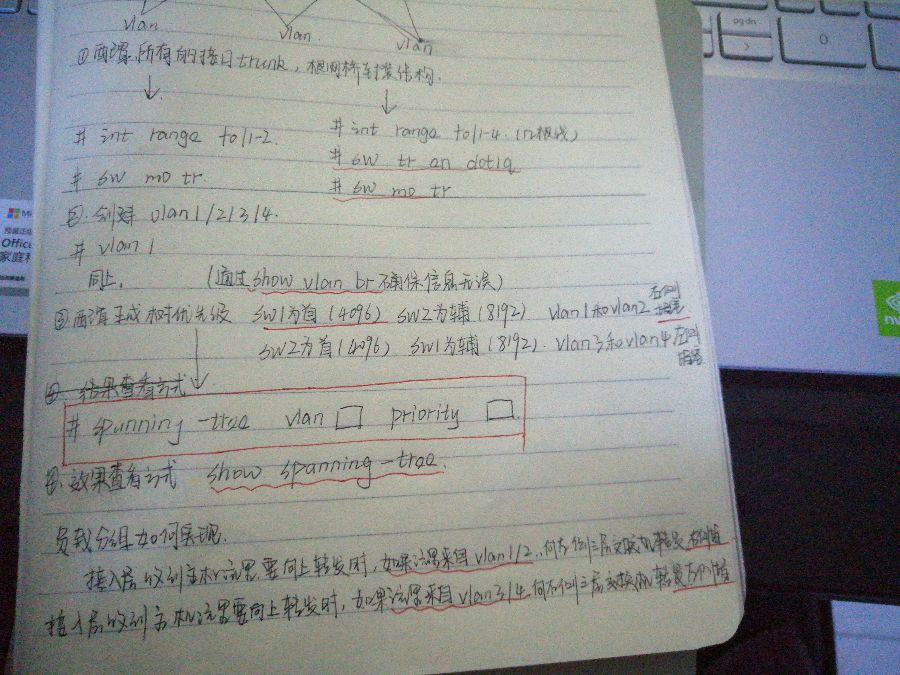 vlan vlan. vlan
①配置所有的接口trunk，根网桥封装结构.
# int range fo/1-2. # int range fo/1-4.
# sw tr en dot1q
# sw mo tr. # sw mo tr
②.创建 vlan1/2/3/4.
# vlan 1
同上. (通过show vlan br 确保信息无误)
③配置生成树优先级 sw1为首(4096) sw2为辅(8192) vlan1和vlan2 左侧
sw2为首(4096) sw1为辅(8192). vlan3和vlan4
④.结果查看方式
# spunning-tree vlan □ priority □.
④.效果查看方式 show spanning-tree.
负载分组如何实现.
接入层收到主机流量要向上转发时,如果流量来自vlan1/2.向左侧三层交换机转发
接入层收到主机流量要向上转发时,如果流量来自vlan3/4.向右侧三层交换机转发
pg dn
>
0
Office
家庭和